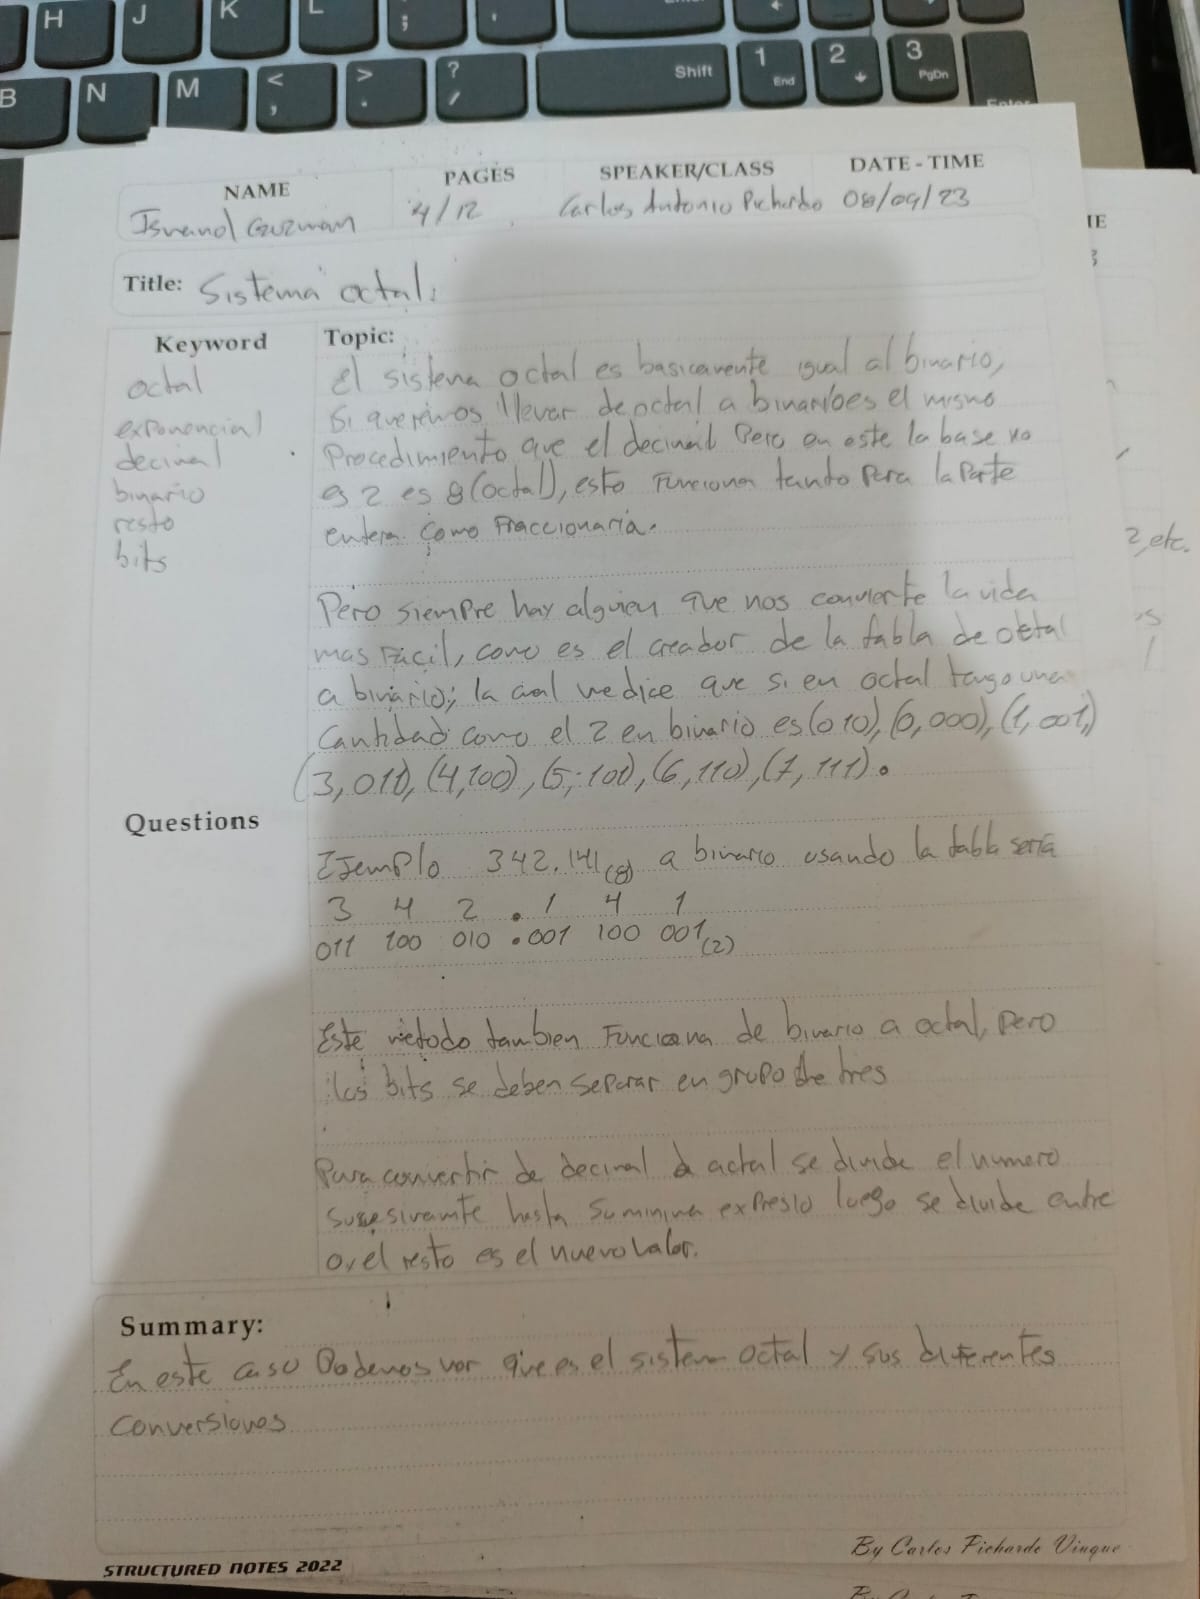 H J K L ; '
B N M < , > . ? / Shift 1 End 2 3 PgDn Enter
NAME PAGES SPEAKER/CLASS DATE - TIME
Ismanol Guzman 4/12 Carlos Antonio Pichardo 08/09/23
Title: Sistema octal:
Keyword
octal
exponencial
decimal
binario
resto
bits
Topic:
El sistema octal es basicamente igual al binario,
Si queremos llevar de octal a binario es el mismo
Procedimiento que el decimal Pero en este la base no
es 2 es 8 (octal), esto Funciona tanto Para la Parte
entera como Fraccionaria.
Pero siempre hay alguien que nos convierte la vida
mas Facil, como es el creador de la tabla de octal
a binario; la cual me dice que si en octal tengo una
Cantidad como el 2 en binario es (010), (0,000), (1,001,)
(3,011), (4,100), (5,101), (6,110), (7,111).
Questions
Ejemplo 342.141(8) a binario usando la tabla seria
3 4 2 . 1 4 1
011 100 010 . 001 100 001(2)
Este metodo tambien Funciona de binario a octal, Pero
los bits se deben separar en grupo de tres
Para convertir de decimal a actal se divide el numero
sucesivamte hasta su minima expresio luego se divide entre
o, el resto es el nuevo valor.
Summary:
En este caso Podemos ver que es el sistema octal y sus diferentes
Conversiones
STRUCTURED NOTES 2022
By Carlos Pichardo Viuque
IE
2, etc.